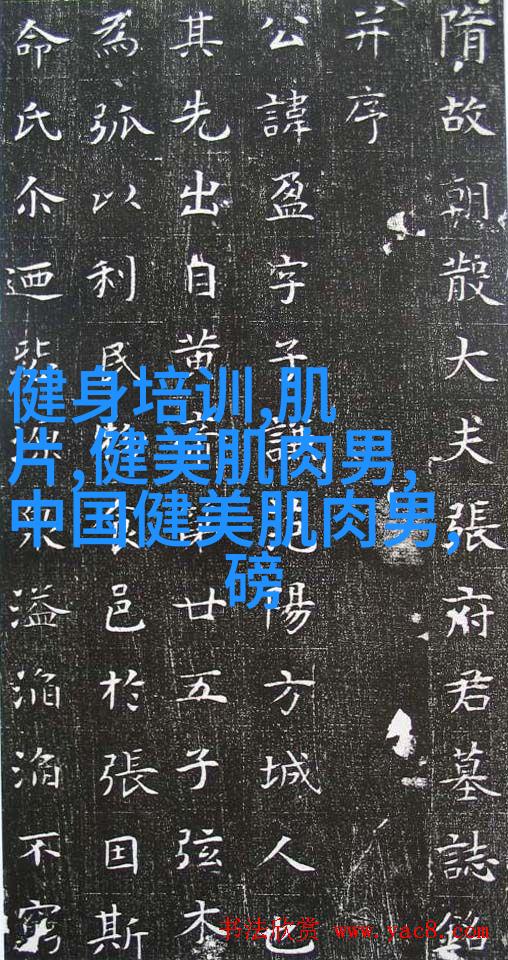 隋故朝散大夫張府君墓誌銘
并序
公諱盈字子謙范陽方城人也
其先出自黃帝第廿五子弦木
為弧以利民食邑於張因斯
命氏尒迺溢滔滔不窮
健身培训,肌
片,健美肌肉男,
中国健美肌肉男,
磅
书法欣赏 www.yac8.com